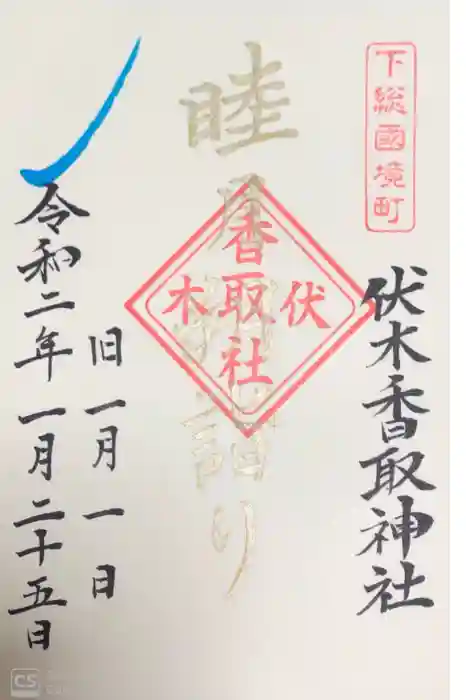 下総國境町
伏木香取神社
睦月朔日詣り
伏木
香取社
旧一月一日
令和二年一月二十五日
CS